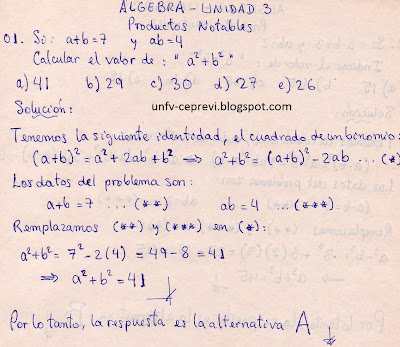 ALGEBRA - UNIDAD 3
Productos Notables
01. Si: a+b=7 y ab=4
Calcular el valor de: "a²+b²"
a) 41 b) 29 c) 30 d) 27 e) 26
Solución: unfv-ceprevi.blogspot.com
Tenemos la siguiente identidad, el cuadrado de un binomio:
(a+b)² = a²+2ab+b² ⟹ a²+b² = (a+b)²-2ab ... (*)
Los datos del problema son:
a+b=7 ... (**) ab=4 ... (***)
Remplazamos (**) y (***) en (*):
a²+b² = 7²-2(4) = 49-8 = 41
⟹ a²+b² = 41
Por lo tanto, la respuesta es la alternativa A